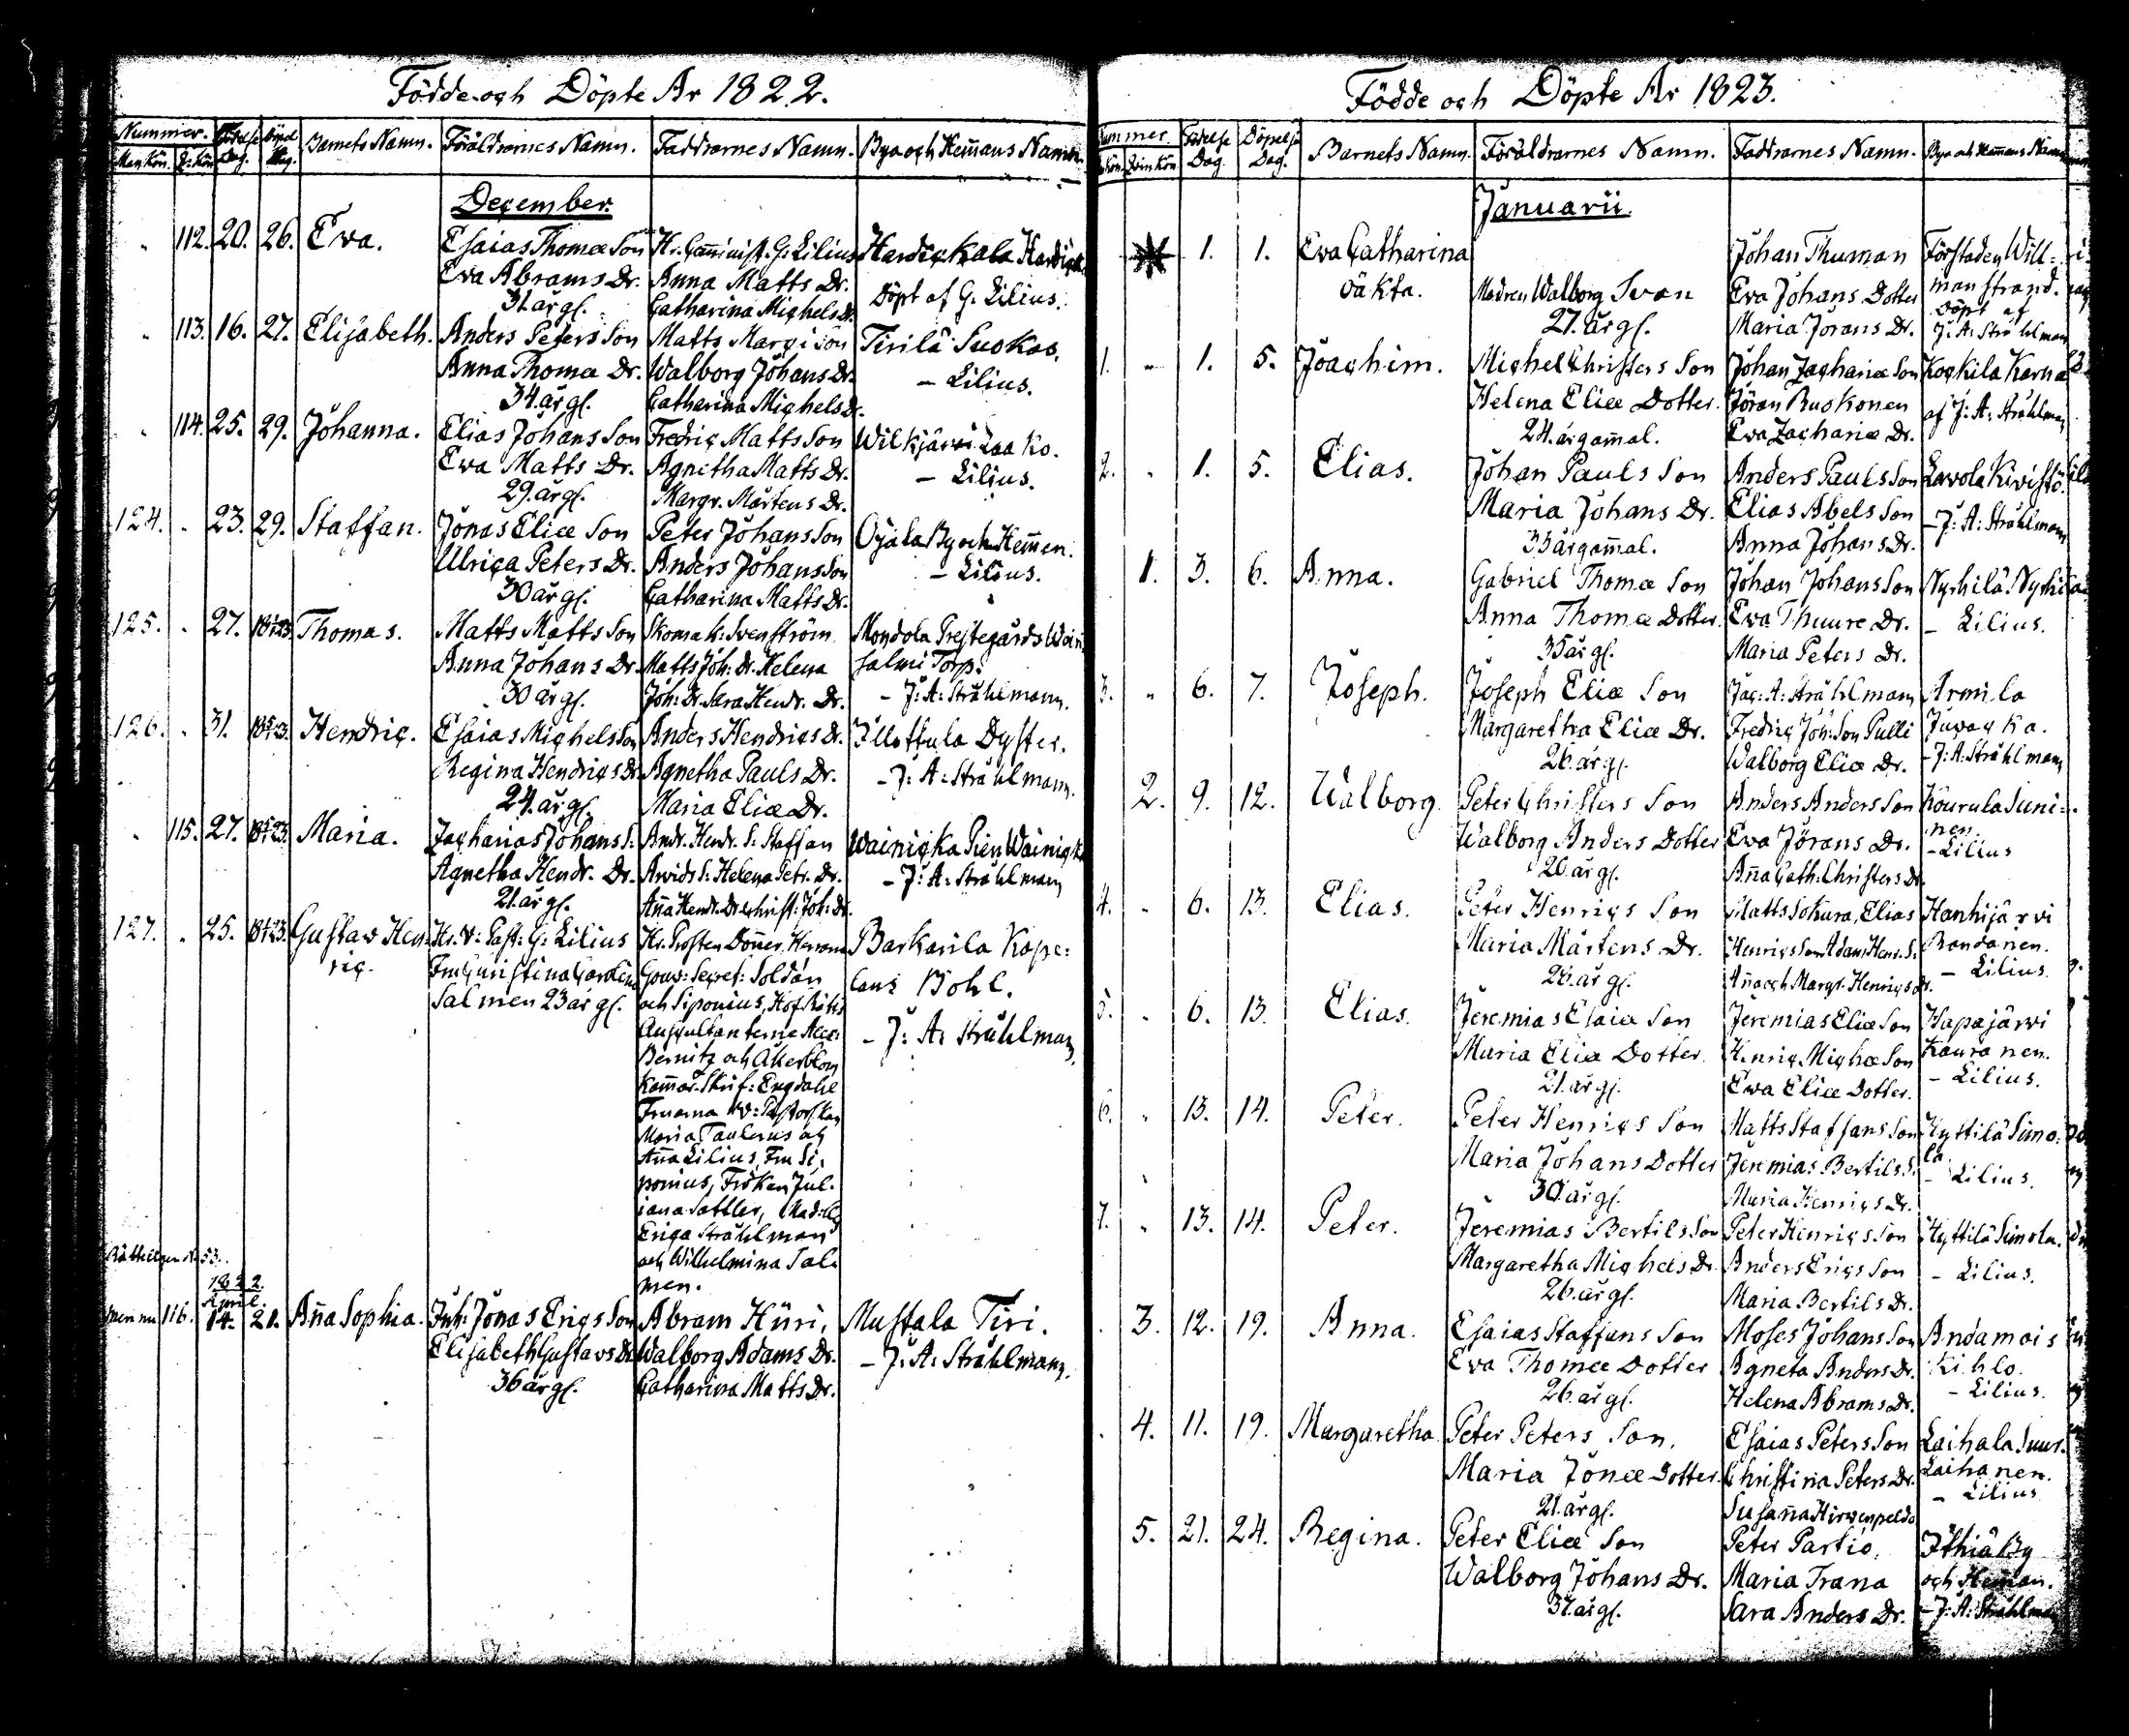 Födde och Döpte År 1822.
Nummer. Födelse Döpel
Mankön. Q:kön Dag. Dag. Barnets Namn. Föräldrarnes Namn. Faddrarnes Namn. Bya och Hem̄ans Namn.
December.
112. 20. 26. Eva. Esaias Thomæ Son Hr. Com̄inist. G: Lilius Hardickala Hardick
Eva Abrams Dr. Anna Matts Dr.
31 år gl. Catharina Michels Dr. Döpt af G: Lilius.
113. 16. 27. Elisabeth. Anders Peters Son Matts Son Tirilä Suokas.
Anna Thomæ Dr. Walborg Johans Dr. – Lilius.
34. år gl. Catharina Michels Dr.
114. 25. 29. Johanna. Elias Johans Son Fredric Matts Son Wilkjärvi Laako.
Eva Matts Dr. Agnetha Matts Dr. – Lilius.
29. år gl. Margr. Mårtens Dr.
124. 23. 29. Staffan. Jonas Eliæ Son Peter Johans Son Ojala By och Hem̄an.
Ulrica Peters Dr. Anders Johans Son – Lilius.
30 år gl. Catharina Matts Dr.
125. 27. Thomas. Matts Matts Son Skomak: Svenström Mondola Prestegårds
Anna Johans Dr. Matts Joh: Dr. Helena salmi Torp.
30 år gl. Joh: Dr. Sara Hendr. Dr. – J: A: Stråhlmann.
126. 31. Hendric. Esaias Michels Son Anders Hendrics Dr. Illottula Dyster.
Regina Hendrics Dr. Agnetha Pauls Dr. – J: A: Stråhlmann.
24. år gl. Maria Eliæ Dr.
115. 27. Maria. Zacharias Johans S. Andr. Hendr. S: Staffan Wainicka Pien Wainick
Agnetha Hendr. Dr. Arvids S: Helena Petr. Dr. – J: A: Stråhlmann
21. år gl. An̄a Hendr. Dr Christ: Joh: Dr.
127. 25. Gustav Hen- Hr. V: Past: G: Lilius Hr. Prosten Don̄er, Herrarne Barkarila Kape:
ric. Fru Christina Carolina Gouv: Secret: Soldán lans Bohl.
Salmen 23 år gl. och Siponius, Hof Rätts – J: A: Stråhlmann.
Auscultanterne
Bernitz och Åkerblom
Kam̄ar-Skrif: Engdahl
Fruarna V: Pastorskan
Maria Taulerus och
An̄a Lilius, Fru Si,
ponius, Fröken Jul.
iana Sattler, Madlle
Erica Stråhlman
och Wilhelmina Sal.
men.
Rättelse N: 53.
1822.
April.
116. 14. 21. An̄a Sophia. Inh: Jonas Erics Son Abram Hüri, Mustala Tiri.
Elisabeth Gustavs Dr. Walborg Adams Dr. – J: A: Stråhlmann.
36 år gl. Catharina Matts Dr.
Födde och Döpte År 1823.
Nummer. Födelse Döpelse
kön. Qvinkön Dag. Dag. Barnets Namn. Föräldrarnes Namn. Faddrarnes Namn. Bya och Hem̄ans Namn
Januarii.
1. 1. Eva Catharina Johan Thuman Förstaden Will-
oäkta. Modren Walborg Svan Eva Johans Dotter manstrand.
27. år gl. Maria Jörans Dr. Döpt af
J: A: Stråhlman
1. 1. 5. Joachim. Michel Christers Son Johan Zachariæ Son Kockila Karna
Helena Eliæ Dotter. Jöran Ruokonen af J: A: Stråhlman
24. år gam̄al. Eva Zachariæ Dr.
2. 1. 5. Elias. Johan Pauls Son Anders Pauls Son Lavola Kivistö.
Maria Johans Dr. Elias Abels Son – J: A: Stråhlmann
33 år gam̄al. Anna Johans Dr.
1. 3. 6. Anna. Gabriel Thomæ Son Johan Johans Son
Anna Thomæ Dotter. Eva Thuure Dr. – Lilius.
35 år gl. Maria Peters Dr.
3. 6. 7. Joseph. Joseph Eliæ Son Jac: A: Stråhlmann Armila
Margaretha Eliæ Dr. Fredric Joh: Son Pulli Juvacka.
26. år gl. Walborg Eliæ Dr. – J: A: Stråhlmann
2. 9. 12. Walborg. Peter Christers Son Anders Anders Son Kourula Suni-
Walborg Anders Dotter Eva Jörans Dr. nen.
26. år gl. An̄a Cath: Christers Dr. – Lilius
4. 6. 13. Elias. Peter Henrics Son Matts Sokura, Elias Hanhijärvi
Maria Mårtens Dr. Henrics Son Adam Henr. S: Randanen.
26. år gl. An̄a och Margr. Henrics Dr. – Lilius.
5. 6. 13. Elias. Jeremias Esaiæ Son Jeremias Eliæ Son Hapajärvi
Maria Eliæ Dotter. Henric Michæ Son Kauranen.
21. år gl. Eva Eliæ Dotter. – Lilius.
6. 13. 14. Peter. Peter Henrics Son Matts Staffans Son Hyttilä Simo.
Maria Johans Dotter Jeremias Bertils S. la
30 år gl. Maria Henrics Dr. – Lilius.
7. 13. 14. Peter. Jeremias Bertils Son Peter Henrics Son Hyttilä Simola.
Margaretha Michels Dr. Anders Erics Son – Lilius.
26. år gl. Maria Bertils Dr.
3. 12. 19. Anna. Esaias Staffans Son Moses Johans Son Andamois
Eva Thomæ Dotter Agneta Anders Dr. Kihlo.
26. år gl. Helena Abrams Dr. – Lilius.
4. 11. 19. Margaretha Peter Peters Son. Esaias Peters Son Laihala Suur.
Maria Jonæ Dotter. Christina Peters Dr. Laihanen.
21. år gl. Susan̄a Hirvenpeldo – Lilius
5. 21. 24. Regina. Peter Eliæ Son Peter Partio, Ithiä By
Walborg Johans Dr. Maria Trana och Heman.
37. år gl. Sara Anders Dr. – J: A: Stråhlman